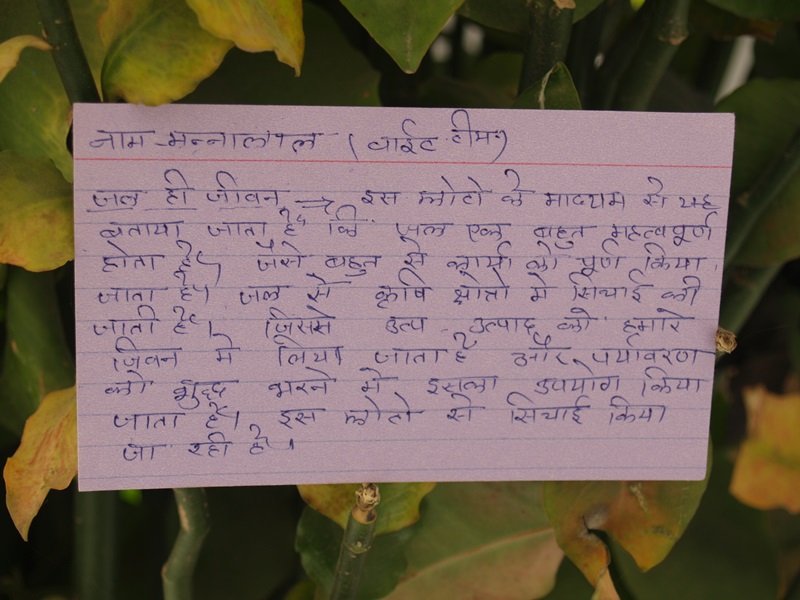 नाम - मन्नालाल (वाईट टीम)
जल ही जीवन → इस फोटो के माध्यम से यह
बताया जाता है कि जल एक बहुत महत्वपूर्ण
होता है। जैसे बहुत से कार्यो को पूर्ण किया
जाता है। जल से कृषि क्षोत्रो मे सिचाई की
जाती है। जिससे उत्प - उत्पाद को हमारे
जिवन मे लिया जाता है और पर्यावरण
को शुद्ध करने मे इसका उपयोग किया
जाता है। इस फोटो से सिचाई किया
जा रही है।